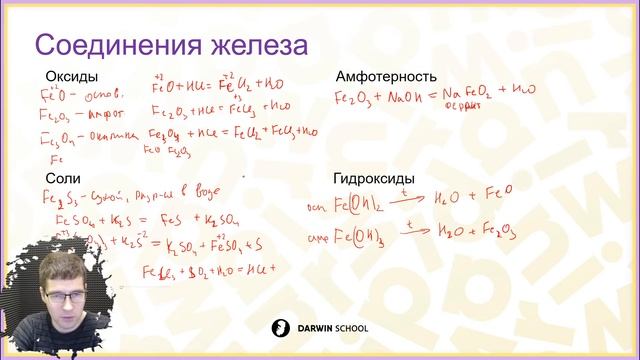 Соединения железа
Оксиды
FeO – основ.
Fe₂O₃ – амфот
Fe₃O₄ – окалина
Fe
+2 +2
FeO + HCl = FeCl₂ + H₂O
+3
Fe₂O₃ + HCl = FeCl₃ + H₂O
Fe₃O₄ + HCl = FeCl₂ + FeCl₃ + H₂O
FeO Fe₂O₃
Амфотерность
Fe₂O₃ + NaOH = NaFeO₂ + H₂O
феррит
Соли
Fe₂S₃ – в воде
FeSO₄ + K₂S = FeS + K₂SO₄
+ K₂S = K₂SO₄ + FeSO₄ + S
+ SO₂ + H₂O = HCl +
Гидроксиды
осн Fe(OH)₂ t → H₂O + FeO
Fe(OH)₃ t → H₂O + Fe₂O₃
DARWIN SCHOOL